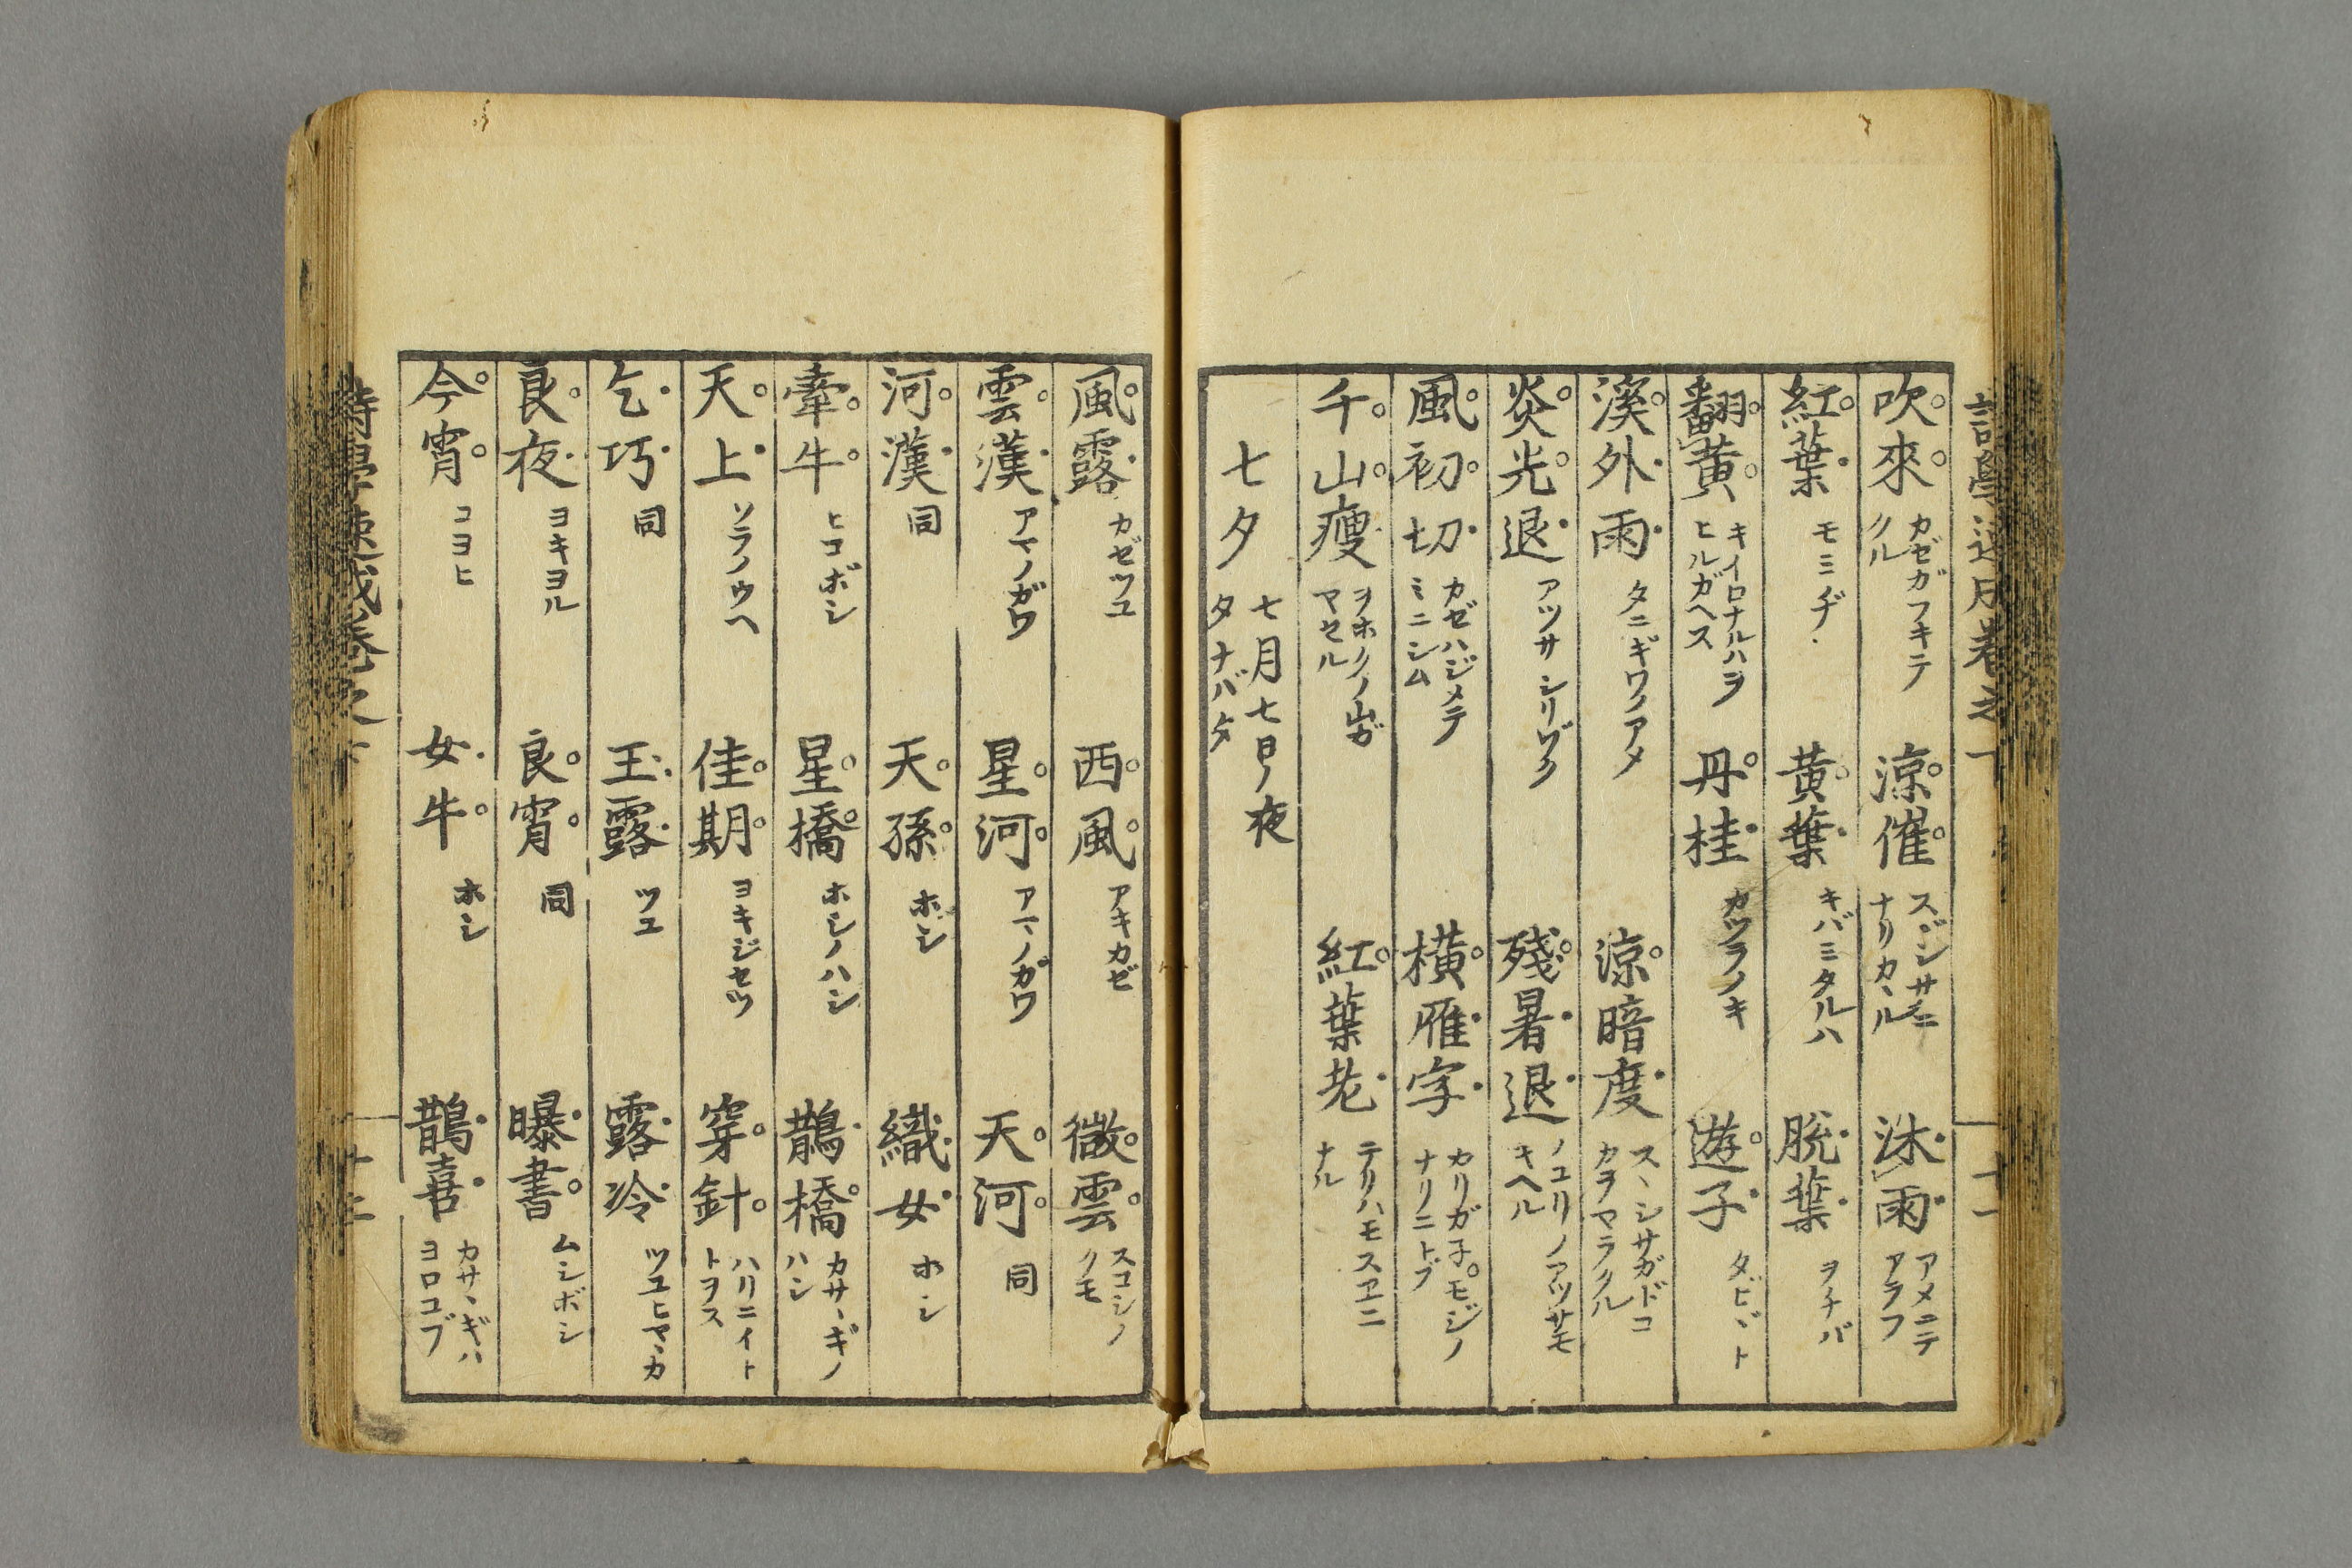 吹來 カゼガフキテクル 涼催 スヾシサガニナリカヽル 沐雨 アメニテアラフ
紅葉 モミヂ 黄葉 キバミタルハ 脱葉 ヲチバ
翻黄 キイロナルハヲヒルガヘス 丹桂 カツラノキ 遊子 タビヾト
溪外雨 タニギワノアメ 涼暗度 スヽシサガドコカヲマラクル
炎光退 アツサシリゾク 殘暑退 ノコリノアツサモキヘル
風初切 カゼハジメテミニシム 横雁字 カリガ子モジノナリニトブ
千山瘦 ヲホクノ山ガヤセル 紅葉老 テリハモスヱニナル
七夕 七月七日ノ夜タナバタ
風露 カゼツユ 西風 アキカゼ 微雲 スコシノクモ
雲漢 アマノガワ 星河 アマノガワ 天河 同
河漢 同 天孫 ホシ 織女 ホシ
牽牛 ヒコボシ 星橋 ホシノハシ 鵲橋 カサヽギノハシ
天上 ソラノウヘ 佳期 ヨキジセツ 穿針 ハリニイトトヲス
乞巧 同 玉露 ツユ 露冷 ツユヒヤヽカ
良夜 ヨキヨル 良宵 同 曝書 ムシボシ
今宵 コヨヒ 女牛 ホシ 鵲喜 カサヽギハヨロコブ